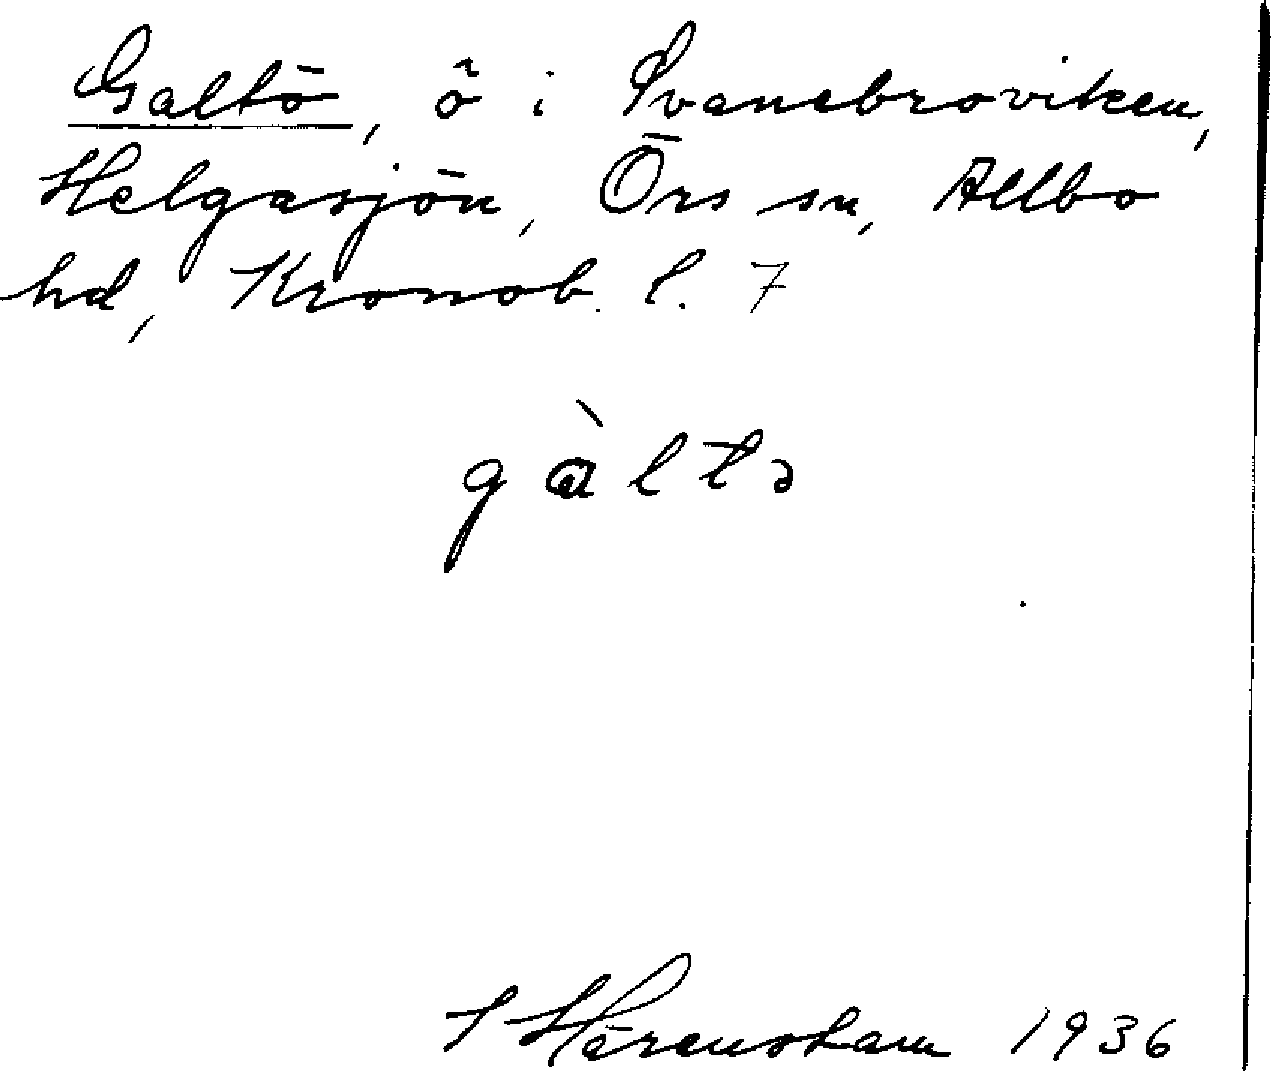 Galtö, ö i Svanebroviken,
Helgasjön, Örs sn, Allbo
hd, Kronob. l. 7
gàltə
1936